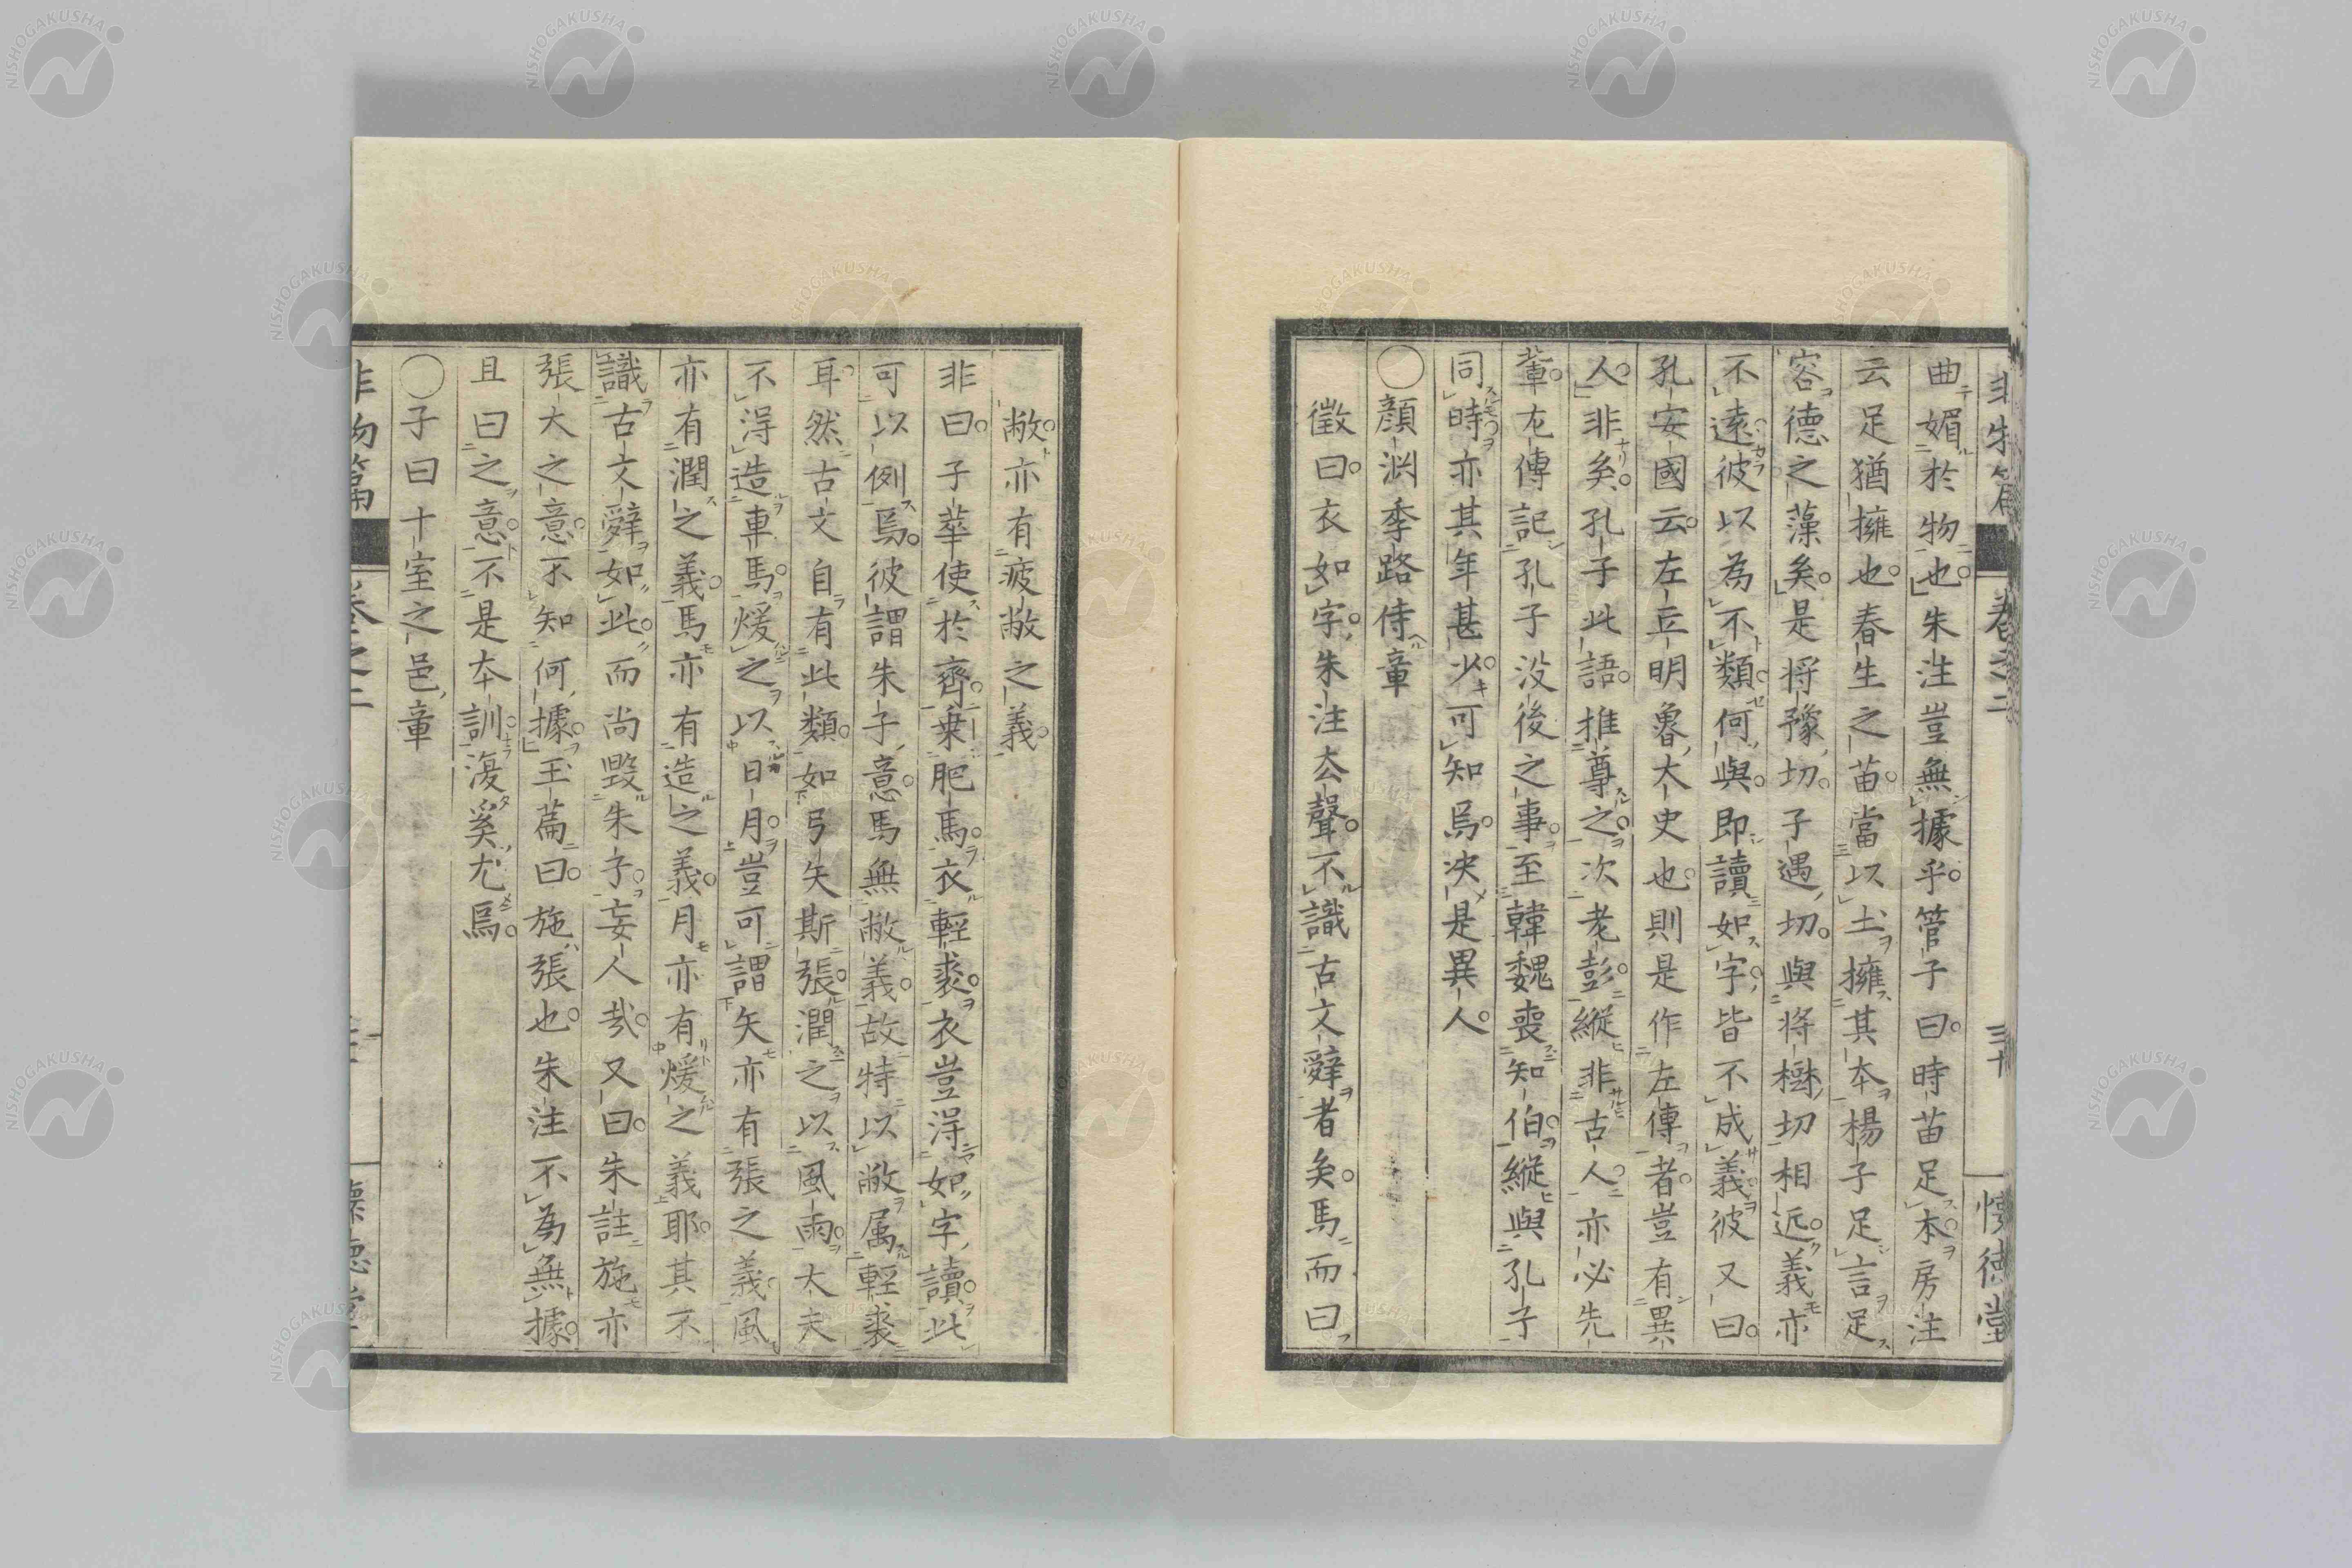 曲媚於物也朱注豈無據乎管子曰時苗足本房注
云足猶擁也春生之苗當以土擁其本楊子足言足
容德之藻矣是将豫切子遇切與将樹切相近義亦
不遠彼以為不類何與即讀如字皆不成義彼又曰
孔安國云左丘明魯大史也則是作左傳者豈有異
人非矣孔子此語推尊之次老彭縦非古人亦必先
輩左傳記孔子没後之事至韓魏喪知伯縦與孔子
同時亦其年甚少可知焉決是異人
○顔渕季路侍章
徴曰衣如字朱注去聲不識古文辭者矣馬而曰
敝亦有疲敝之義
非曰子華使於齊乗肥馬衣輕裘衣豈得如字讀此
可以例焉彼謂朱子意馬無敝義故特以敝属輕裘
耳然古文自有此類如弓矢斯張潤之以風雨大夫
不得造車馬煖之以日月豈可謂矢亦有張之義風
亦有潤之義馬亦有造之義月亦有煖之義耶其不
識古文辭如此而尚毀朱子妄人哉又曰朱註施亦
張大之意不知何據玉篇曰施張也朱注不為無據
且曰之意不是本訓復奚尤焉
○子曰十室之邑章
非物篇
卷之二
三十
懐徳堂
NISHOGAKUSHA